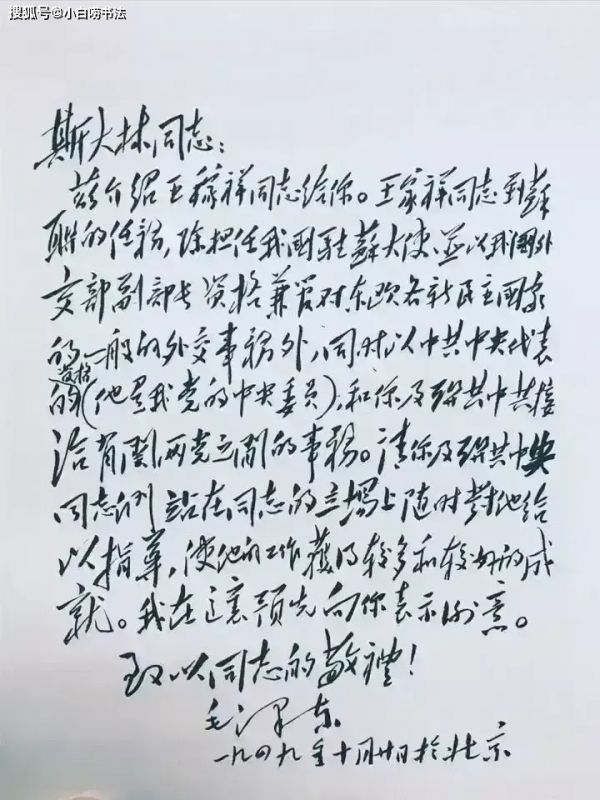 搜狐号@小白唠书法
斯大林同志：
兹介绍王稼祥同志给你。王家祥同志到蘇
聯的任務，除担任我國駐蘇大使、並以我國外
交部副部长資格兼管对东欧各新民主國家
的一般的外交事務外，同时以中共中央代表
資格
的(他是我党的中央委员)，和你及聯共中共接
洽有關兩党之間的事務。请你及聯共中央
同志们站在同志的立場上随时對他给
以指導，使他的工作獲得较多和较好的成
就。我在這裏預先向你表示谢意。
致以同志的敬禮！
毛泽东
一九四九年十月廿日於北京